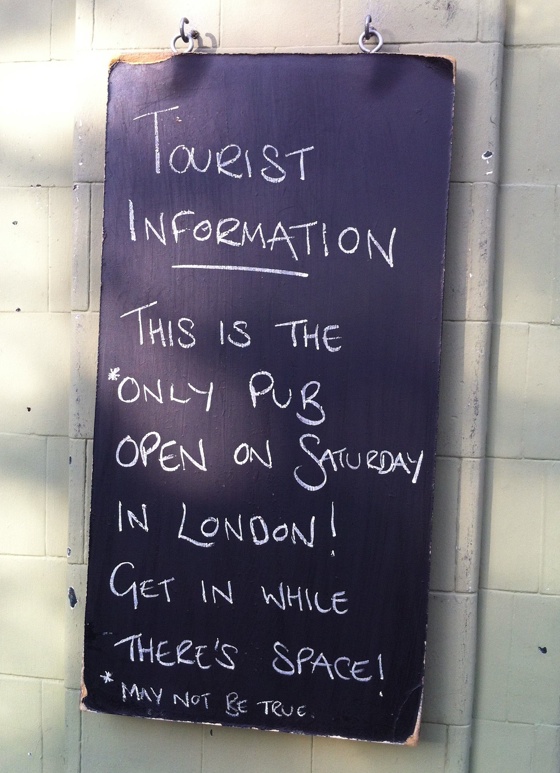 TOURIST
INFORMATION
THIS IS THE
*ONLY PUB
OPEN ON SATURDAY
IN LONDON!
GET IN WHILE
THERE'S SPACE!
* MAY NOT BE TRUE.